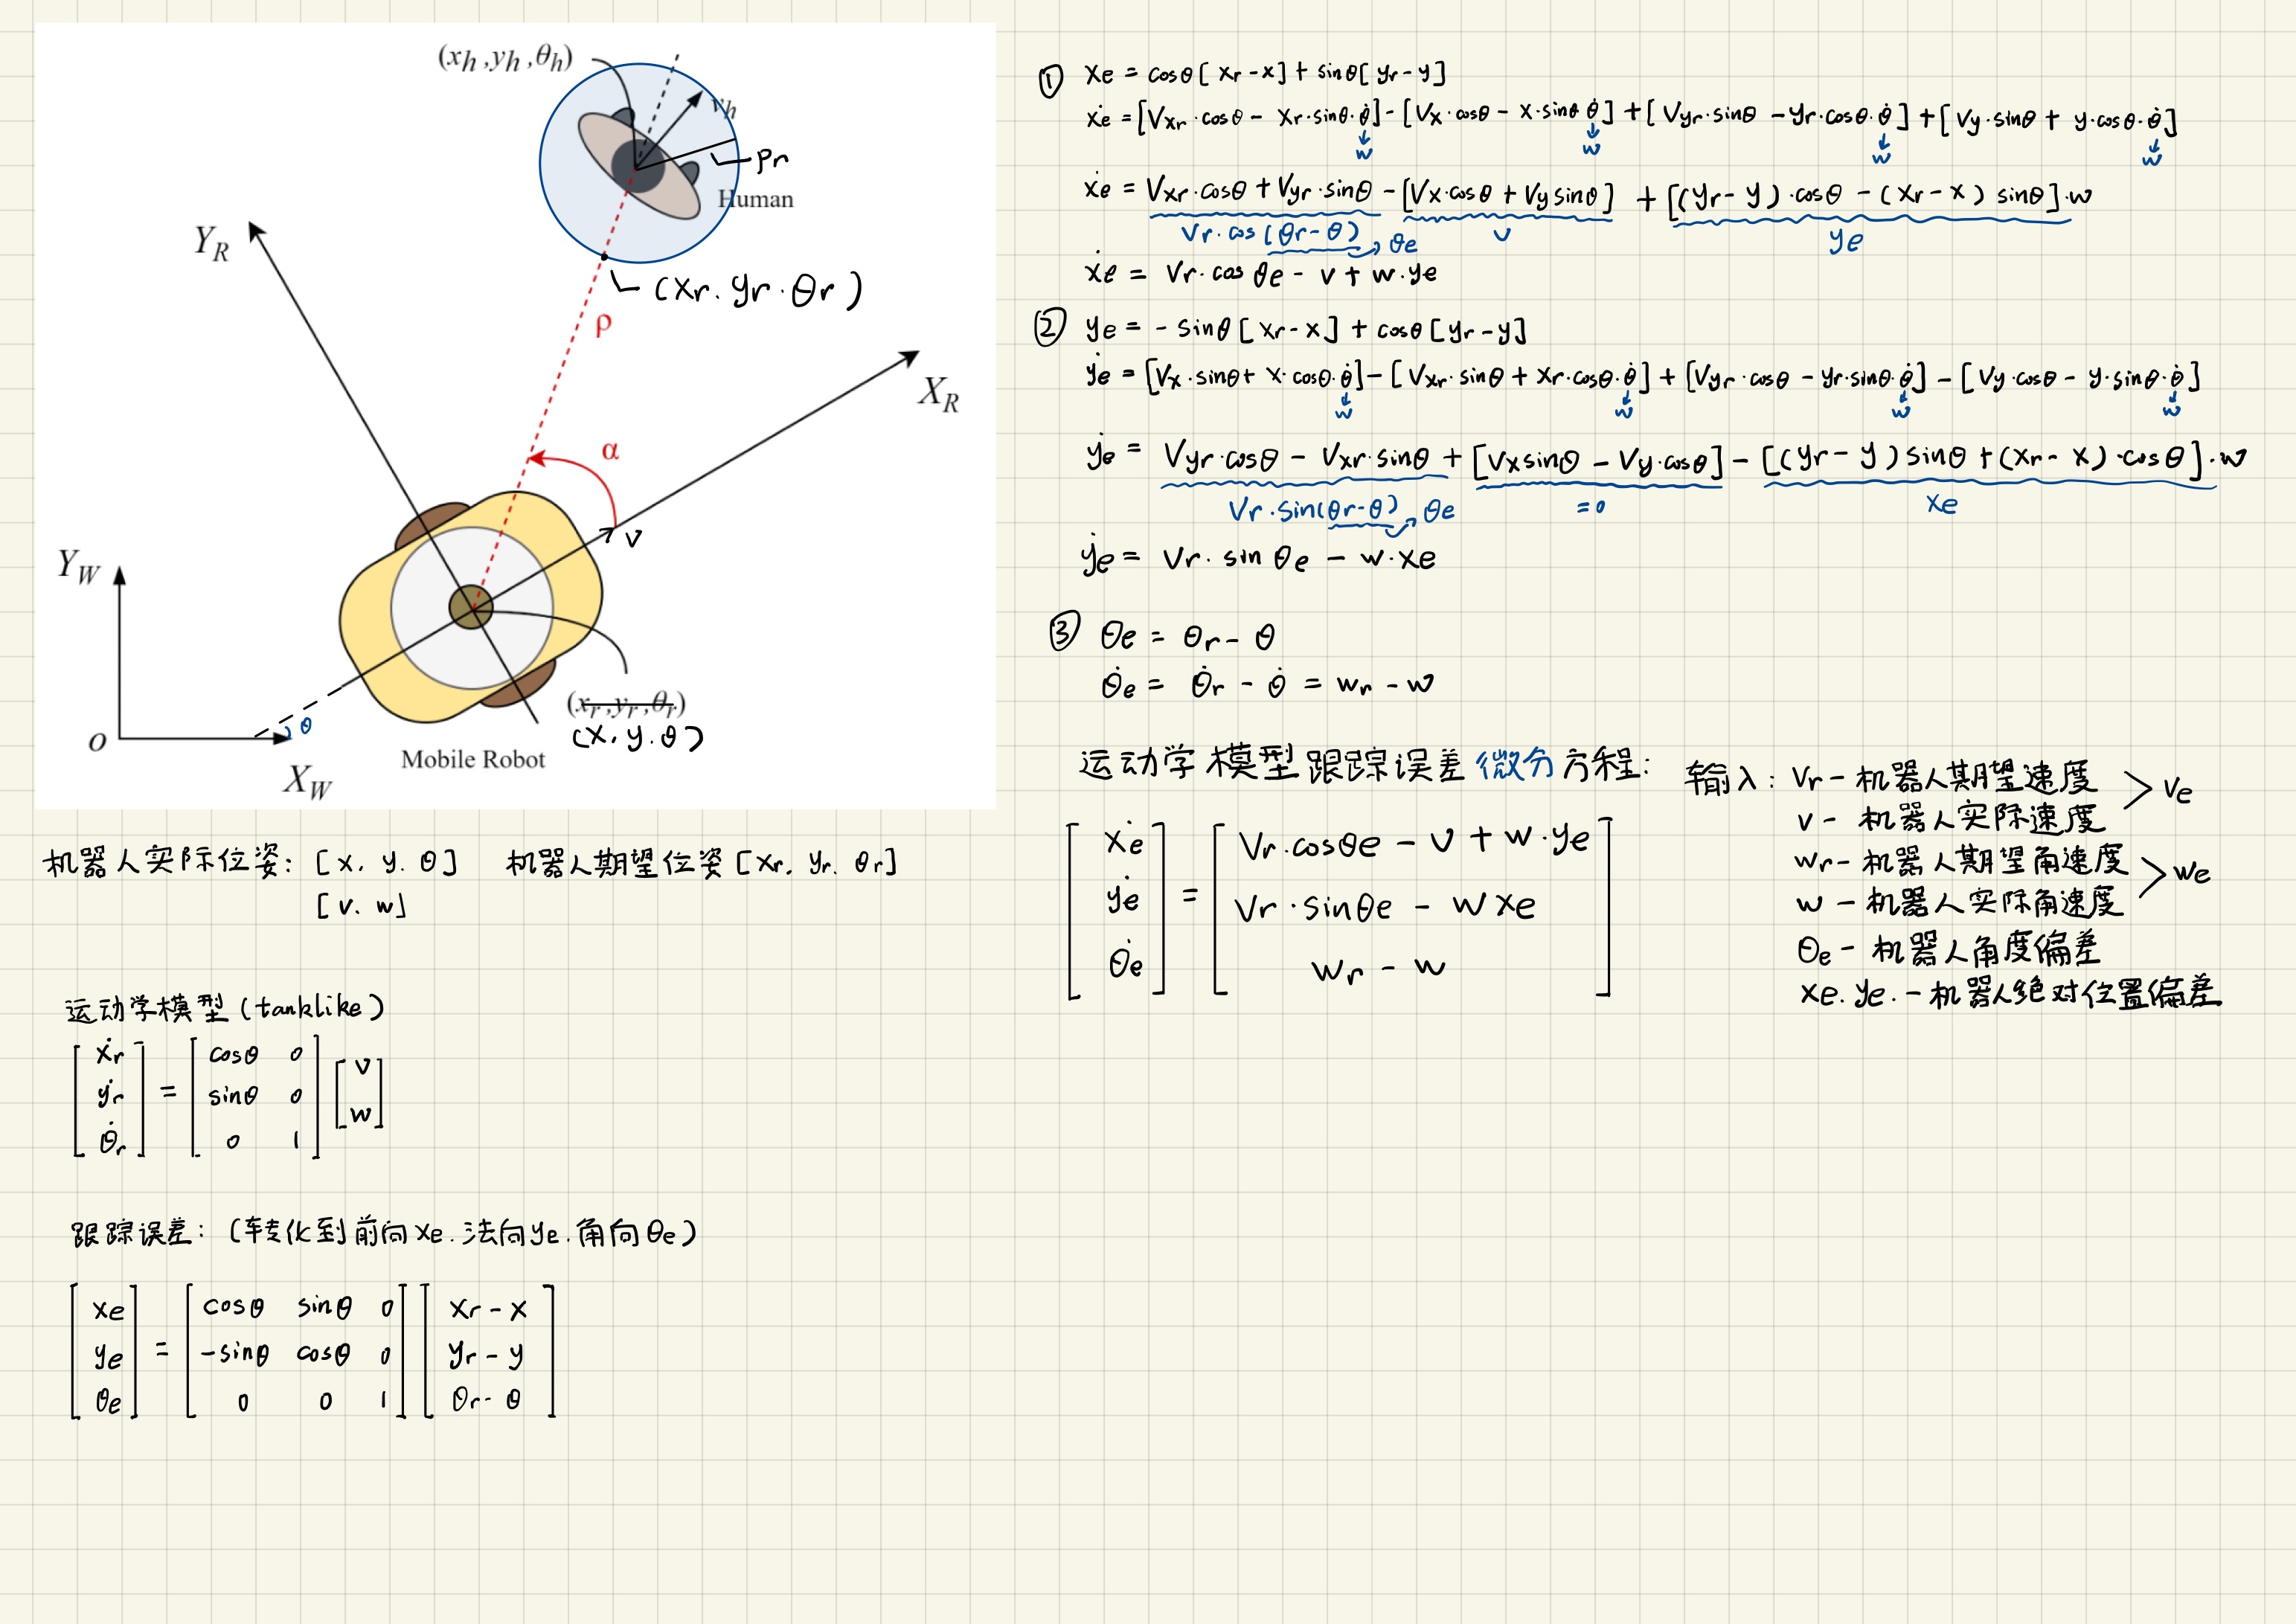 (x_h, y_h, θ_h)
v_h
Pr
Human
Y_R
(xr. yr. θr)
ρ
X_R
α
v
Y_W
(x_r, y_r, θ_r)
θ
(x, y. θ)
O
Mobile Robot
X_W
机器人实际位姿: [x, y. θ] 机器人期望位姿 [xr, yr. θr]
[v. w]
运动学模型 (tanklike)
[ẋr ẏr θ̇r] = [cosθ 0; sinθ 0; 0 1] [v w]
跟踪误差: (转化到前向xe. 法向ye. 角向θe)
[xe ye θe] = [cosθ sinθ 0; -sinθ cosθ 0; 0 0 1] [xr-x; yr-y; θr-θ]
① xe = cosθ[xr-x] + sinθ[yr-y]
ẋe = [Vxr·cosθ - xr·sinθ·θ̇] - [Vx·cosθ - x·sinθ θ̇] + [Vyr·sinθ - yr·cosθ·θ̇] + [Vy·sinθ + y·cosθ·θ̇]
w w w w
ẋe = Vxr·cosθ + Vyr·sinθ - [Vx·cosθ + Vy sinθ] + [(yr-y)·cosθ - (xr-x) sinθ]·w
Vr·cos(θr-θ) θe v ye
ẋe = Vr·cos θe - v + w·ye
② ye = -sinθ[xr-x] + cosθ[yr-y]
ẏe = [Vx·sinθ + x·cosθ·θ̇] - [Vxr·sinθ + xr·cosθ·θ̇] + [Vyr·cosθ - yr·sinθ·θ̇] - [Vy·cosθ - y·sinθ·θ̇]
w w w w
ẏe = Vyr·cosθ - Vxr·sinθ + [Vx sinθ - Vy·cosθ] - [(yr-y) sinθ + (xr-x)·cosθ]·w
Vr·sin(θr-θ) θe =0 xe
ẏe = Vr·sin θe - w·xe
③ θe = θr - θ
θ̇e = θ̇r - θ̇ = wr - w
运动学模型跟踪误差微分方程:
[ẋe ẏe θ̇e] = [Vr·cosθe - v + w·ye; Vr·sinθe - w xe; wr - w]
输入: Vr - 机器人期望速度 > Ve
v - 机器人实际速度
wr - 机器人期望角速度 > we
w - 机器人实际角速度
θe - 机器人角度偏差
xe. ye. - 机器人绝对位置偏差